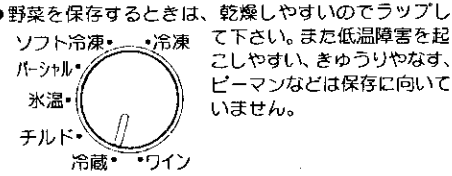 ●野菜を保存するときは、乾燥しやすいのでラップし
て下さい。また低温障害を起
こしやすい、きゅうりやなす、
ピーマンなどは保存に向いて
いません。
ソフト冷凍
冷凍
パーシャル
氷温
チルド
冷蔵
ワイン